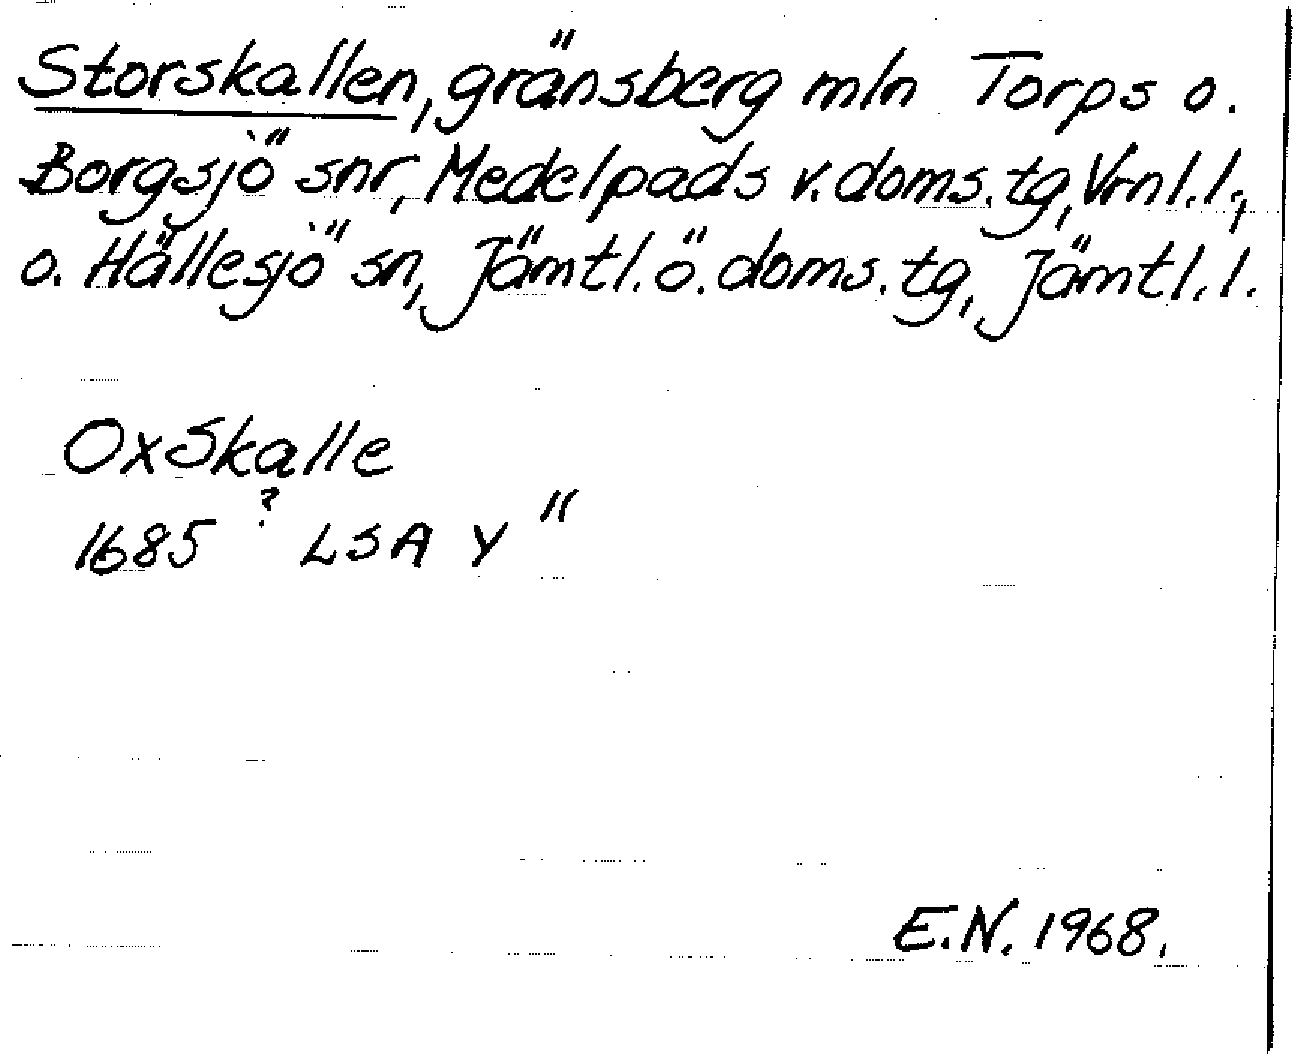 Storskallen, gränsberg mln Torps o.
Borgsjö snr, Medelpads v. doms. tg, Vrnl. l.,
o. Hällesjö sn, Jämtl. ö. doms. tg, Jämtl. l.
OxSkalle
1685 ? LSA Y "
E.N. 1968.